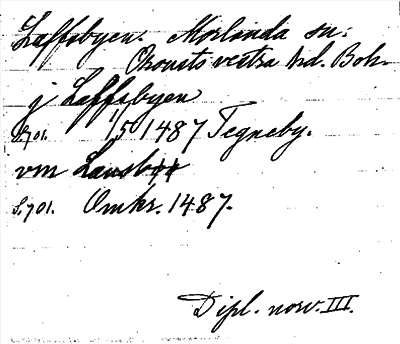 Laffsbyen. Morlanda sn:
Orousts vestra hd. Boh.
j Laffsbyen
S.701. 1/5 1487 Tegneby.
vm Lausbøø
S.701. Omkr. 1487.
Dipl. norv. III.